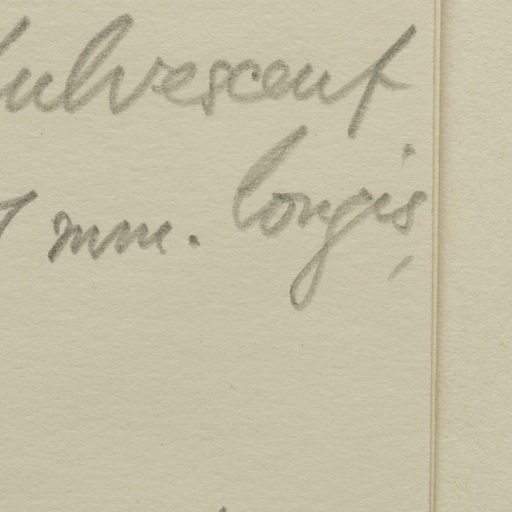 fulvescent
mm. longis,